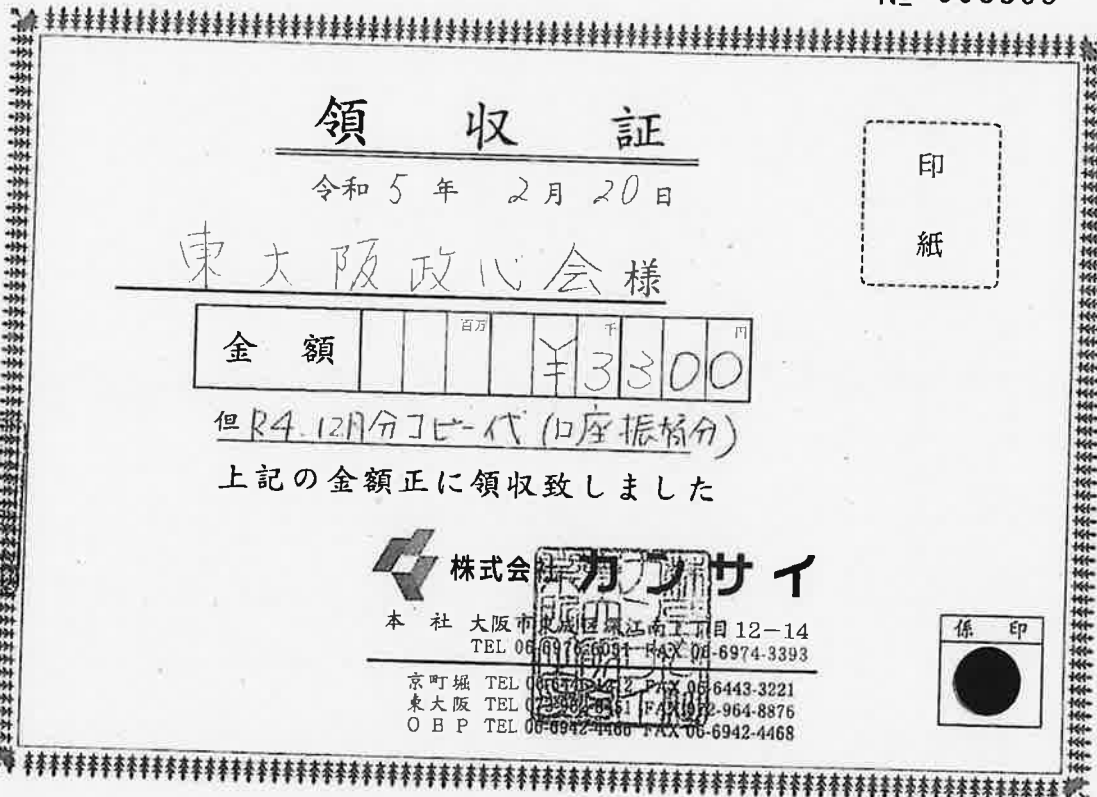 領収証
印紙
令和 5 年 2月 20日
東大阪政心会様
金額 百万 千 円 ¥3300
但 R4.12月分コピー代 (口座振替分)
上記の金額正に領収致しました
株式会社 カンサイ
本社 大阪市東成区深江南1丁目12-14
TEL FAX 06-6974-3393
京町堀 TEL FAX 06-6443-3221
東大阪 TEL FAX 072-964-8876
OBP TEL 06-6942-4466 FAX 06-6942-4468
係印